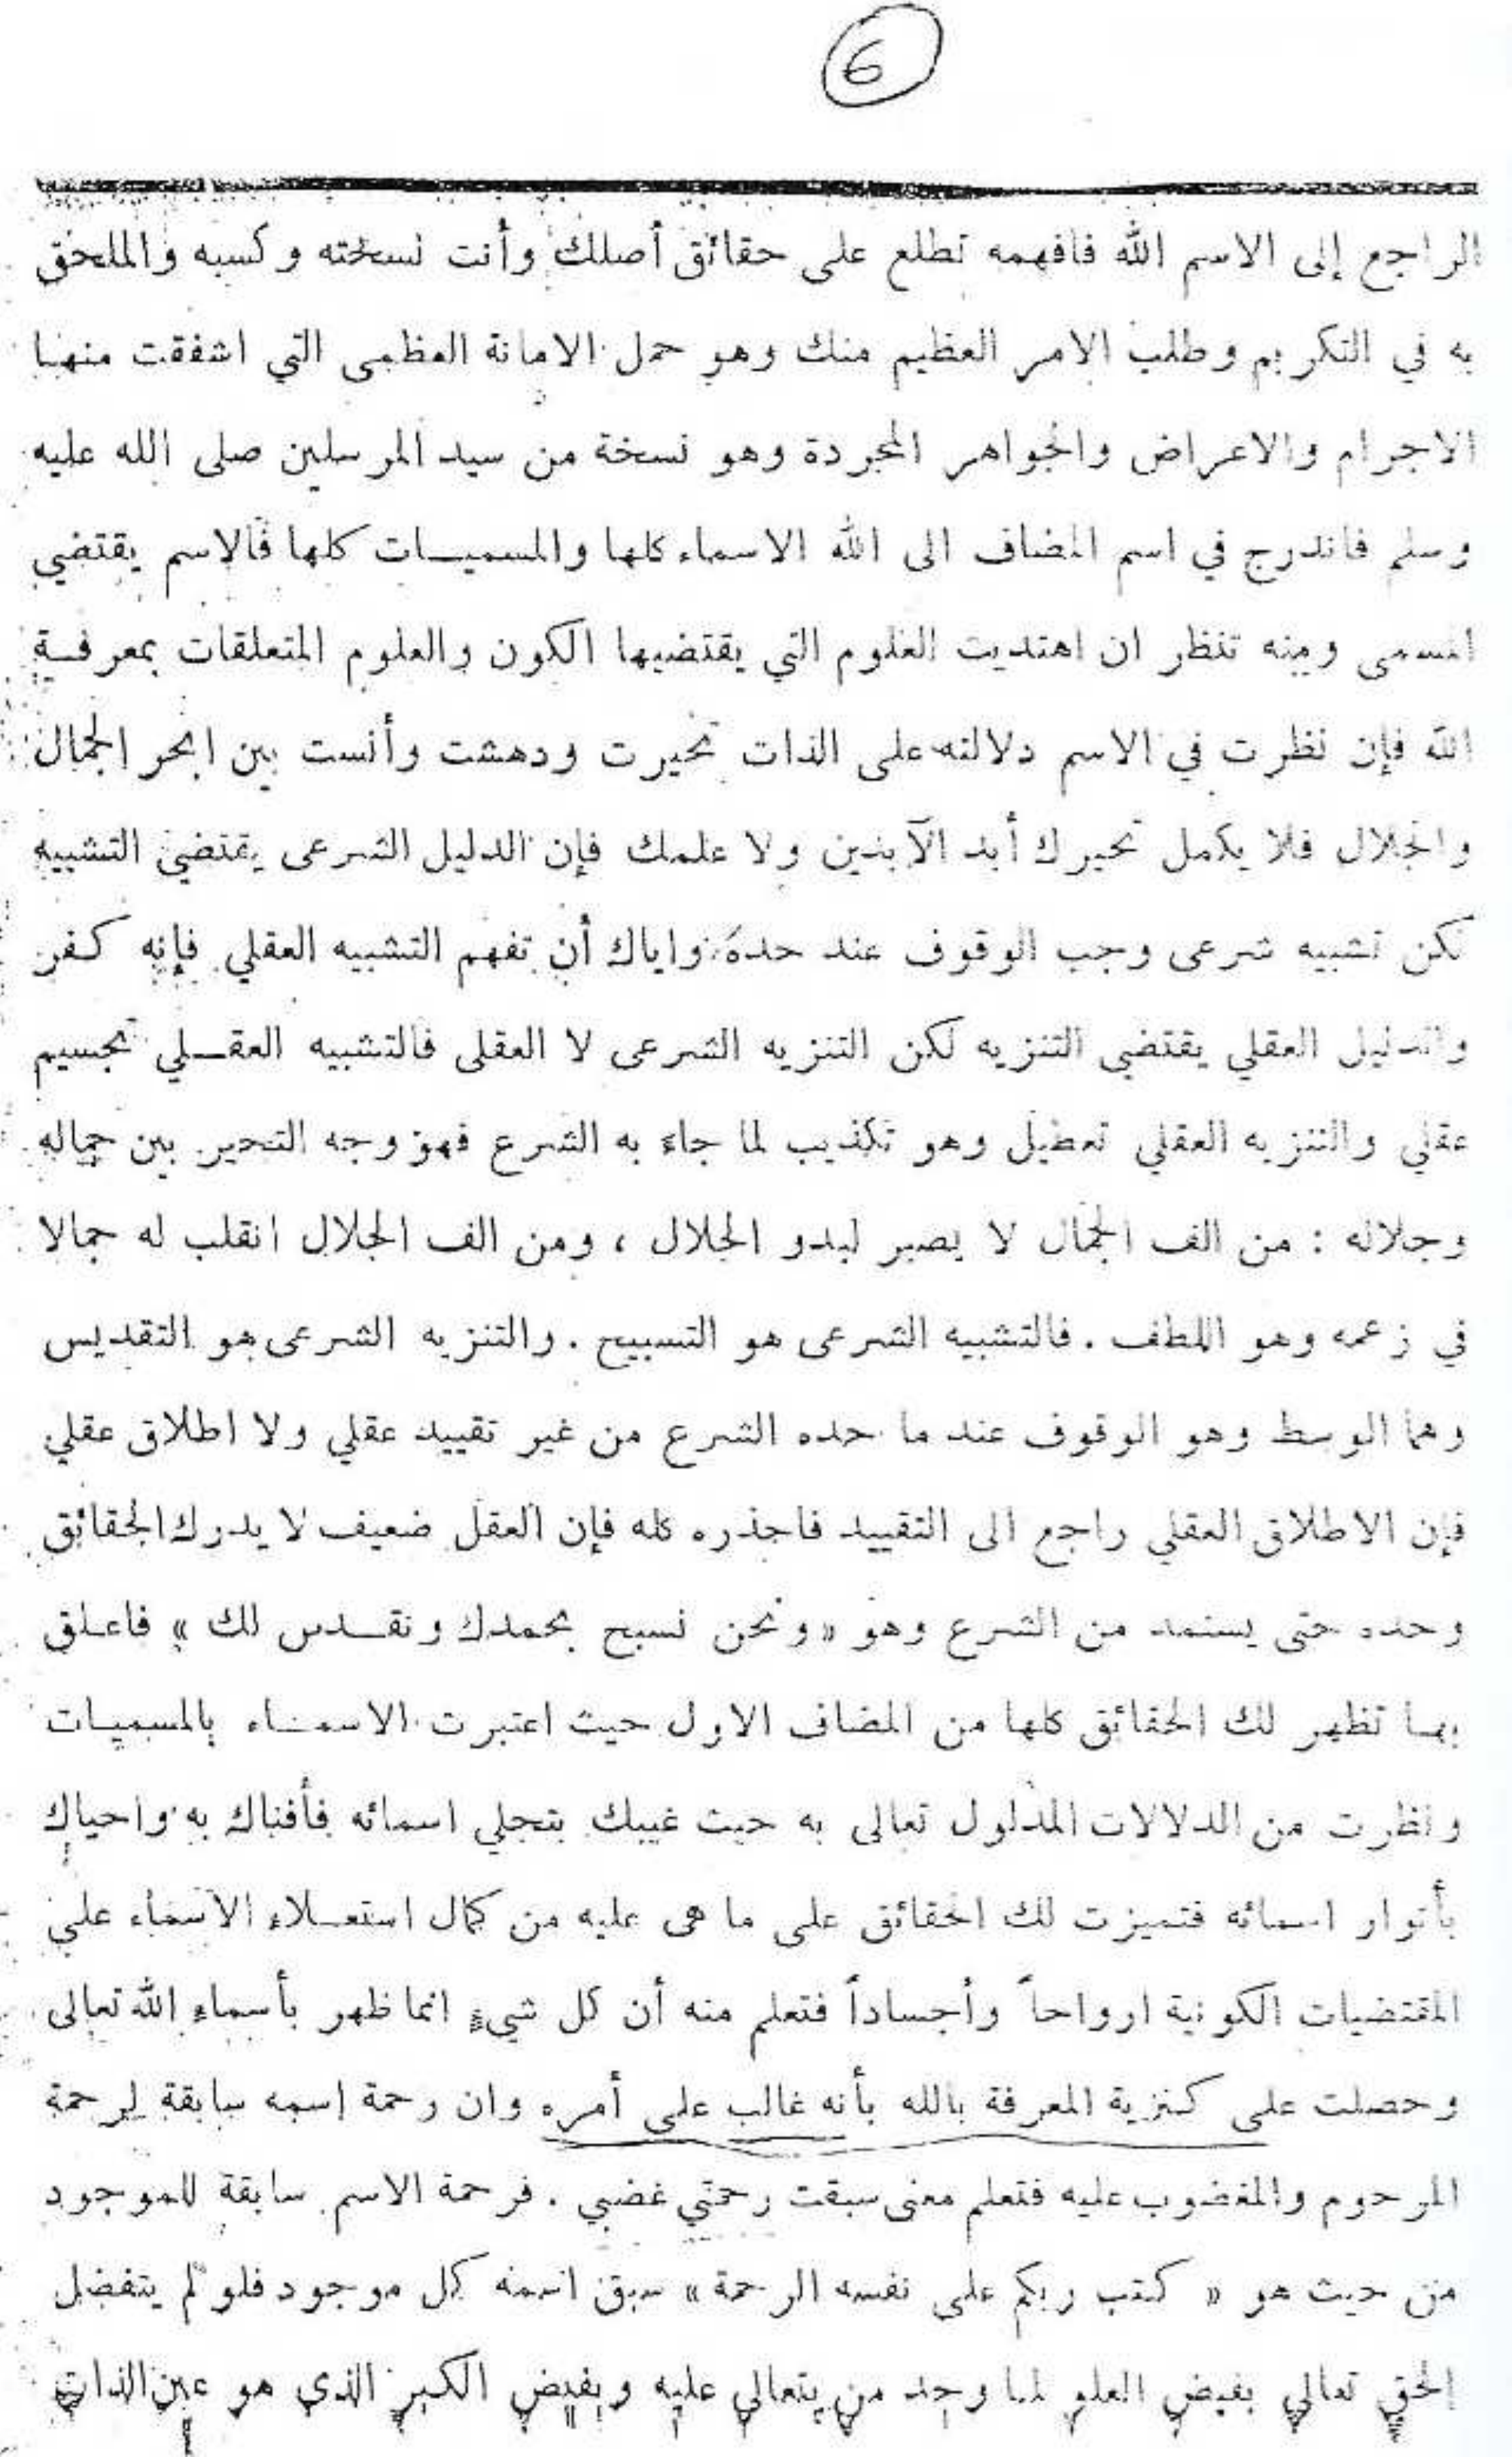 6
الراجع إلى الاسم الله فافهمه تطلع على حقائق أصلك وأنت نسخته وكسبه والملحق
به في التكريم وطلب الامر العظيم منك وهو حمل الامانة العظمى التي اشفقت منها
الاجرام والاعراض والجواهر المجردة وهو نسخة من سيد المرسلين صلى الله عليه
وسلم فاندرج في اسم المضاف الى الله الاسماء كلها والمسميات كلها فالاسم يقتضي
المسمى ومنه تنظر ان اهتديت العلوم التي يقتضيها الكون والعلوم المتعلقات بمعرفة
الله فإن نظرت في الاسم دلالته على الذات تحيرت ودهشت وأنست بين ابحر الجمال
والجلال فلا يكمل تحيرك أبد الآبدين ولا علمك فإن الدليل الشرعى يقتضي التشبيه
لكن تشبيه شرعى وجب الوقوف عند حده وإياك أن تفهم التشبيه العقلي فإنه كفر
والدليل العقلي يقتضى التنزيه لكن التنزيه الشرعى لا العقلى فالتشبيه العقلي تجسيم
عقلي والتنزيه العقلي تعطيل وهو تكذيب لما جاء به الشرع فهو وجه التحير بين جماله
وجلاله : من الف الجمال لا يصبر لبدو الجلال ، ومن الف الجلال انقلب له جمالا
في زعمه وهو اللطف . فالتشبيه الشرعى هو التسبيح . والتنزيه الشرعى هو التقديس
وهما الوسط وهو الوقوف عند ما حده الشرع من غير تقييد عقلي ولا اطلاق عقلي
فإن الاطلاق العقلي راجع الى التقييد فاحذره كله فإن العقل ضعيف لا يدرك الحقائق
وحده حتى يستمد من الشرع وهو « ونحن نسبح بحمدك ونقدس لك » فاعلق
بها تظهر لك الحقائق كلها من المضاف الاول حيث اعتبرت الاسماء بالمسميات
ونظرت من الدلالات المدلول تعالى به حيث غيبك بتجلي اسمائه فأفناك به واحياك
بأنوار اسمائه فتميزت لك الحقائق على ما هى عليه من كمال استعلاء الاسماء على
المقتضيات الكونية ارواحاً وأجساداً فتعلم منه أن كل شيء انما ظهر بأسماء الله تعالى
وحصلت على كنزية المعرفة بالله بأنه غالب على أمره وان رحمة اسمه سابقة لرحمة
المرحوم والمغضوب عليه فتعلم معنى سبقت رحمتي غضبي . فرحمة الاسم سابقة للموجود
من حيث هو « كتب ربكم على نفسه الرحمة » سبق اسمه كل موجود فلو لم يتفضل
الحق تعالى بفيض العلو لما وجد من يتعالى عليه وبفيض الكبر الذي هو عين الذات